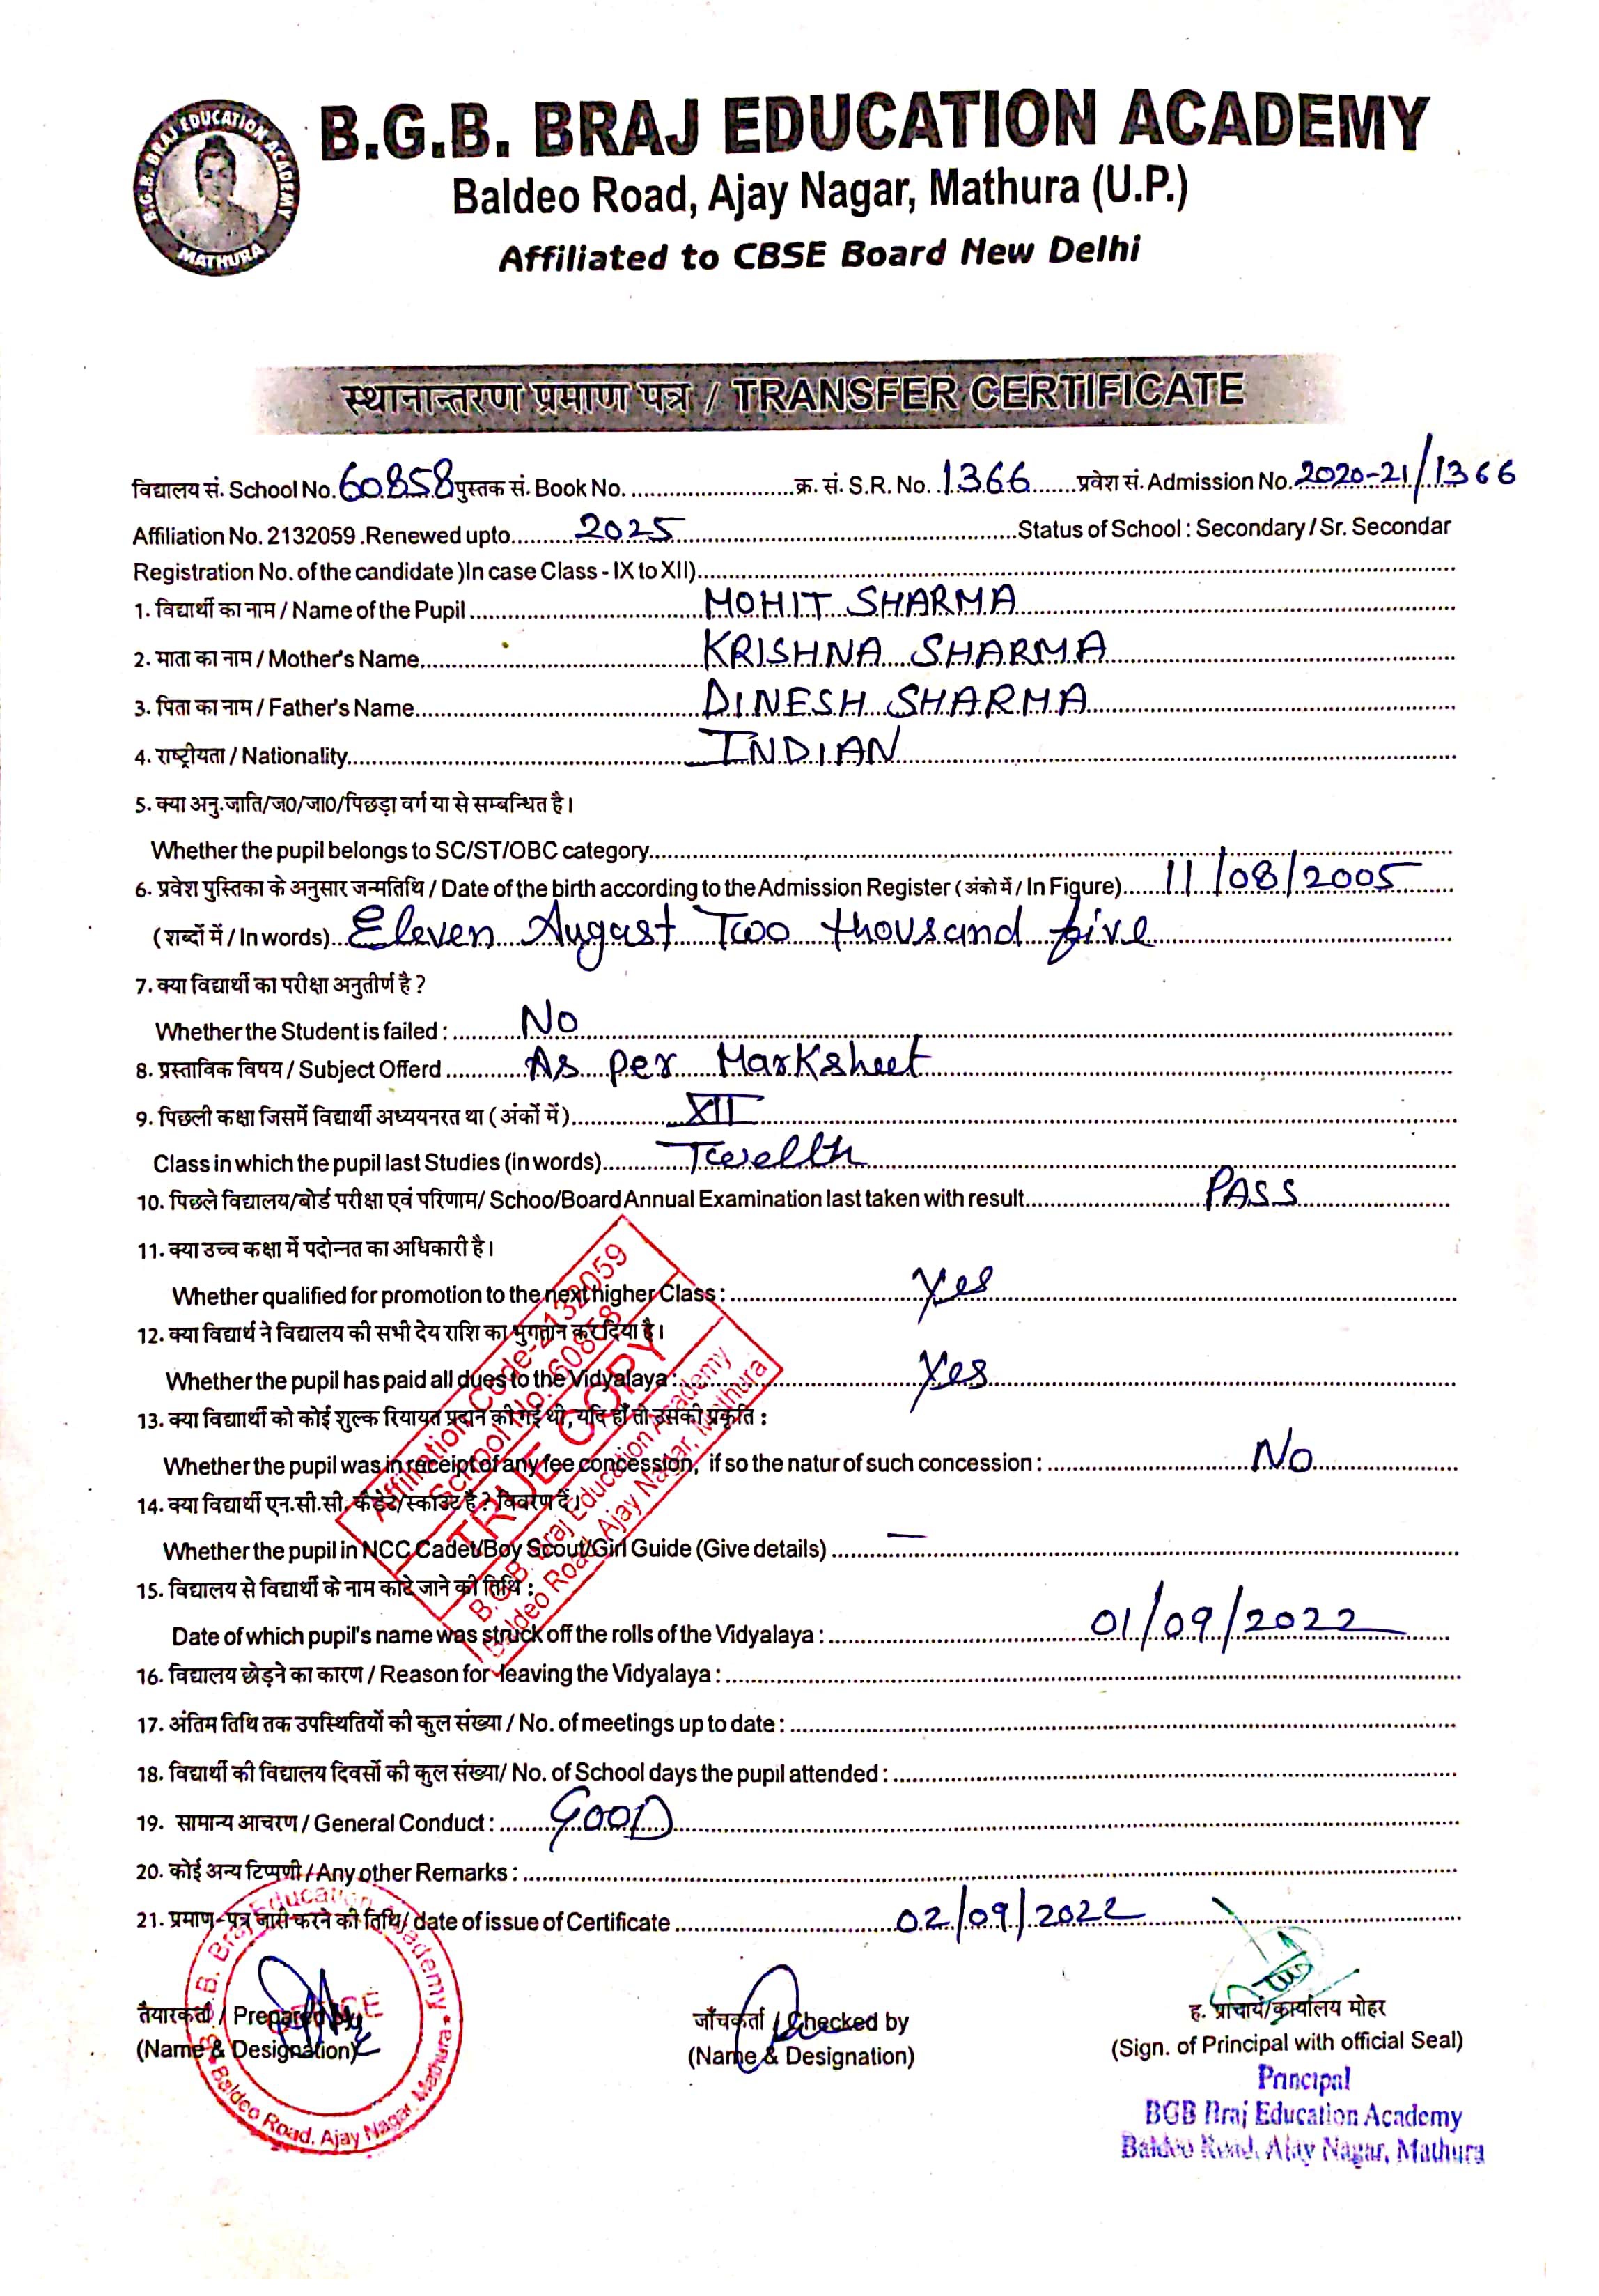 B.G.B. BRAJ EDUCATION ACADEMY
MATHURA
B.G.B. BRAJ EDUCATION ACADEMY
Baldeo Road, Ajay Nagar, Mathura (U.P.)
Affiliated to CBSE Board New Delhi
स्थानान्तरण प्रमाण पत्र / TRANSFER CERTIFICATE
विद्यालय सं. School No. 60858 पुस्तक सं. Book No. .......... क्र. सं. S.R. No. 1366 प्रवेश सं. Admission No. 2020-21/1366
Affiliation No. 2132059 .Renewed upto.......... 2025 ..........Status of School : Secondary / Sr. Secondar
Registration No. of the candidate )In case Class - IX to XII)..........
1. विद्यार्थी का नाम / Name of the Pupil .......... MOHIT SHARMA
2. माता का नाम / Mother's Name.......... KRISHNA SHARMA
3. पिता का नाम / Father's Name.......... DINESH SHARMA
4. राष्ट्रीयता / Nationality.......... INDIAN
5. क्या अनु.जाति/ज0/जा0/पिछड़ा वर्ग या से सम्बन्धित है।
Whether the pupil belongs to SC/ST/OBC category..........
6. प्रवेश पुस्तिका के अनुसार जन्मतिथि / Date of the birth according to the Admission Register ( अंको में / In Figure)...... 11/08/2005
( शब्दों में / In words).. Eleven August Two thousand five
7. क्या विद्यार्थी का परीक्षा अनुतीर्ण है ?
Whether the Student is failed : .......... No
8. प्रस्ताविक विषय / Subject Offerd .......... As per Marksheet
9. पिछली कक्षा जिसमें विद्यार्थी अध्ययनरत था ( अंकों में ).......... XII
Class in which the pupil last Studies (in words).......... Twelth
10. पिछले विद्यालय/बोर्ड परीक्षा एवं परिणाम/ Schoo/Board Annual Examination last taken with result.......... PASS
11. क्या उच्च कक्षा में पदोन्नत का अधिकारी है।
Whether qualified for promotion to the next higher Class : .......... Yes
12. क्या विद्यार्थ ने विद्यालय की सभी देय राशि का भुगतान कर दिया है।
Whether the pupil has paid all dues to the Vidyalaya : .......... Yes
13. क्या विद्याार्थी को कोई शुल्क रियायत प्रदान की गई थी, यदि हाँ तो उसकी प्रकृति :
Whether the pupil was in receipt of any fee concession, if so the natur of such concession : .......... No
14. क्या विद्यार्थी एन.सी.सी. कैडेट/स्काउट है ? विवरण दें।
Whether the pupil in NCC Cadet/Boy Scout/Girl Guide (Give details) .......... —
15. विद्यालय से विद्यार्थी के नाम काटे जाने की तिथि :
Date of which pupil's name was struck off the rolls of the Vidyalaya : .......... 01/09/2022
16. विद्यालय छोड़ने का कारण / Reason for leaving the Vidyalaya : ..........
17. अंतिम तिथि तक उपस्थितियों की कुल संख्या / No. of meetings up to date : ..........
18. विद्यार्थी की विद्यालय दिवसों की कुल संख्या/ No. of School days the pupil attended : ..........
19. सामान्य आचरण / General Conduct : .......... GOOD
20. कोई अन्य टिप्पणी / Any other Remarks : ..........
21. प्रमाण-पत्र जारी करने की तिथि/ date of issue of Certificate .......... 02/09/2022
Affiliation Code-2132059
School No. 60858
TRUE COPY
B.G.B. Braj Education Academy
Baldeo Road, Ajay Nagar, Mathura
B.G.B. Braj Education Academy
OFFICE
Baldeo Road, Ajay Nagar, Mathura
तैयारकर्ता / Prepared by
(Name & Designation)
जाँचकर्ता / Checked by
(Name & Designation)
ह. प्राचार्य/कार्यालय मोहर
(Sign. of Principal with official Seal)
Principal
BGB Braj Education Academy
Baldeo Road, Ajay Nagar, Mathura